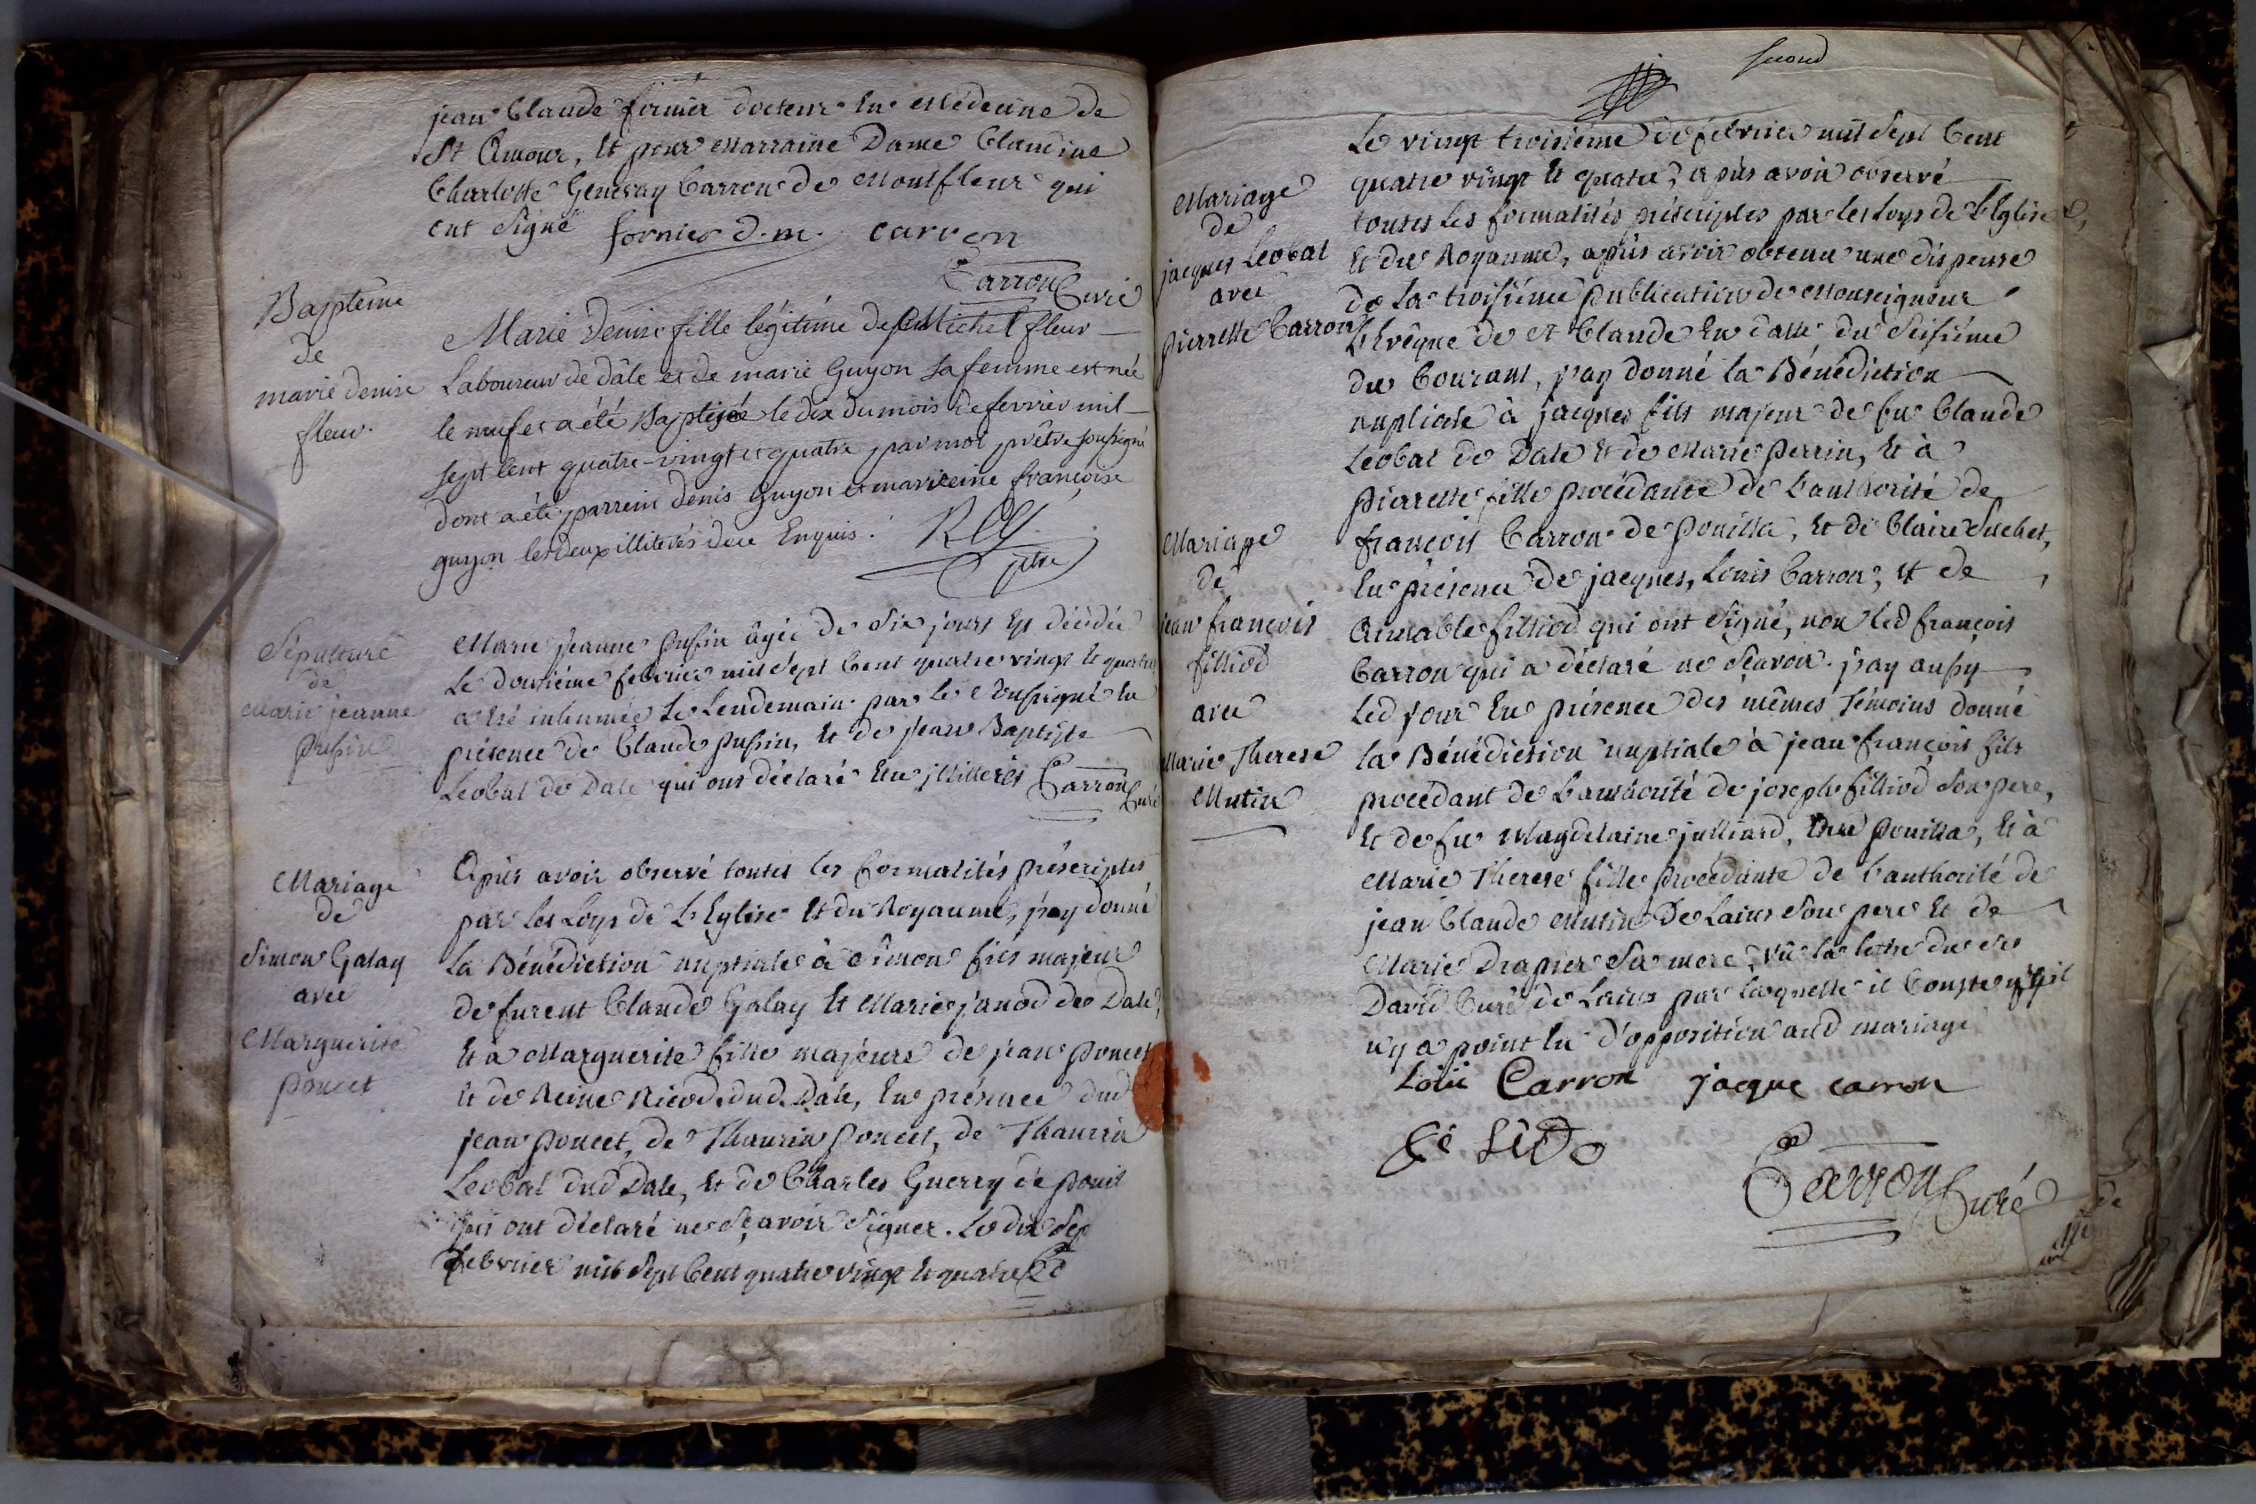 jean Claude fornier docteur En Médecine de
St Amour, Et pour Marraine Dame Claudine
Charlotte Genevay Carron de Montfleur qui
ont Signé fornier d.m. carron
Carron Curé
Baptême
de
marie denise
fleur.
Marie Denise fille légitime de Michel fleur
Laboureur de dâle et de marie Guyon sa femme est née
le neuf et a été Baptisée le dix du mois de fevrier mil
sept cent quatre-vingt et quatre par moi prêtre soussigné
dont a été parrein denis Guyon et marreine françoise
guyon les deux illiterés de ce Enquis.
ptre
Sépulture
de
Marie jeanne
pussin
Marie jeanne pussin âgée de Six jours Est décédée
Le douzième febvrier mil Sept Cent quatre vingt Et quatre
a Eté inhumée Le Lendemain par le Soussigné En
présence de Claude pussin, Et de jean Baptiste
Leobal de Dale qui ont déclaré Etre jllitterés Carron Curé
Mariage
de
Simon Galay
avec
Marguerite
poncet
Apres avoir observé toutes les formalités préscriptes
par les Loys de L'Eglise Et du Royaume, j'ay donné
La Bénédiction nuptiale à Simon fils majeur
de furent Claude Galay Et Marie janod de Dale,
Et à Marguerite fille majeure de jean poncet
Et de Reine Nicod dud. Dale, En présence dud
jean poncet, de Thaurin poncet, de Thaurin
Leobal dud Dale, Et de Charles Guerry de pouil
qui ont déclaré ne Sçavoir Signer. Le dix Sep
febvrier mil Sept Cent quatre vingt Et quatre
second
Mariage
de
jacques Leobal
avec
pierrette Carron
Le vingt troisième de febvrier mil Sept Cent
quatre vingt Et quatre, après avoir observé
toutes les formalités préscriptes par les Loys de L'Eglise
Et du Royaume, après avoir obtenu une dispense
de La troisième publication de Monseigneur
L'Evêque de St Claude En datte du Seisième
du Courant, j'ay donné la Bénédiction
nuptiale à jacques fils majeur de feu Claude
Leobal de Dale Et de Marie perrin, Et à
pierrette fille procédante de L'authorité de
françois Carron de pouilla, Et de Claire Suchet,
En présence de jacques, Louis Carron, Et de
Aimable filliod qui ont Signé, non led françois
Carron qui a déclaré ne Sçavoir. j'ay aussy
Led jour En présence des mêmes Témoins donné
la Bénédiction nuptiale à jean françois fils
procédant de L'authorité de joseph filliod Son pere,
Et de feu Magdelaine julliard, de pouilla, Et à
Marie Therese fille procédante de L'authorité de
jean Claude Mutin De Lains Son pere Et de
Marie Drapier Sa mere, vû la lettre du Sr
David Curé de Lains par laquelle il Conste qu'il
n'y a point Eu d'opposition aud mariage
Mariage
de
jean françois
filliod
avec
Marie Therese
Mutin
Loüi Carron jacque carron
Carron Curé